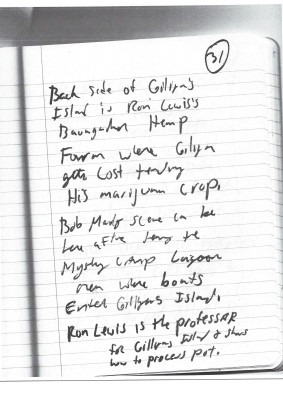 31
Back side of Gilligan's
Island is Ron Lewis's
Hemp
Farm where Gilligan
gets Lost tending
His marijuana crop.
Bob Marley scene can be
here after the
Mystery Lagoon
area where boats
Enter Gilligans Island.
Ron Lewis is the professor
for Gilligans Island & shows
how to process pot.